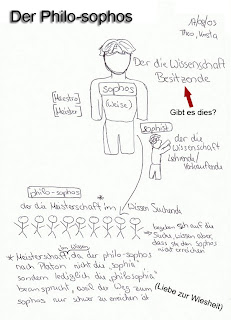 Der Philo-sophos
17/09/03
Theo, Kosta
Der die Wissenschaft
Besitzende
sophos
(Weise)
[Maestro]
[Meister]
Gibt es dies?
sophist
der die
Wissenschaft
Lehrende/
Verkaufende
philo-sophos
der die Meisterschaft im Wissen Suchende
begeben sich auf die
Suche, wissen aber,
dass sie den sophos
nicht erreichen
im Wissen
* Meisterschaft, da der philo-sophos
nach Platon nicht die "sophia"
sondern lediglich die "philosophia"
beansprucht, weil der Weg zum
sophos nur schwer zu erreichen ist
(Liebe zur Wiesheit)